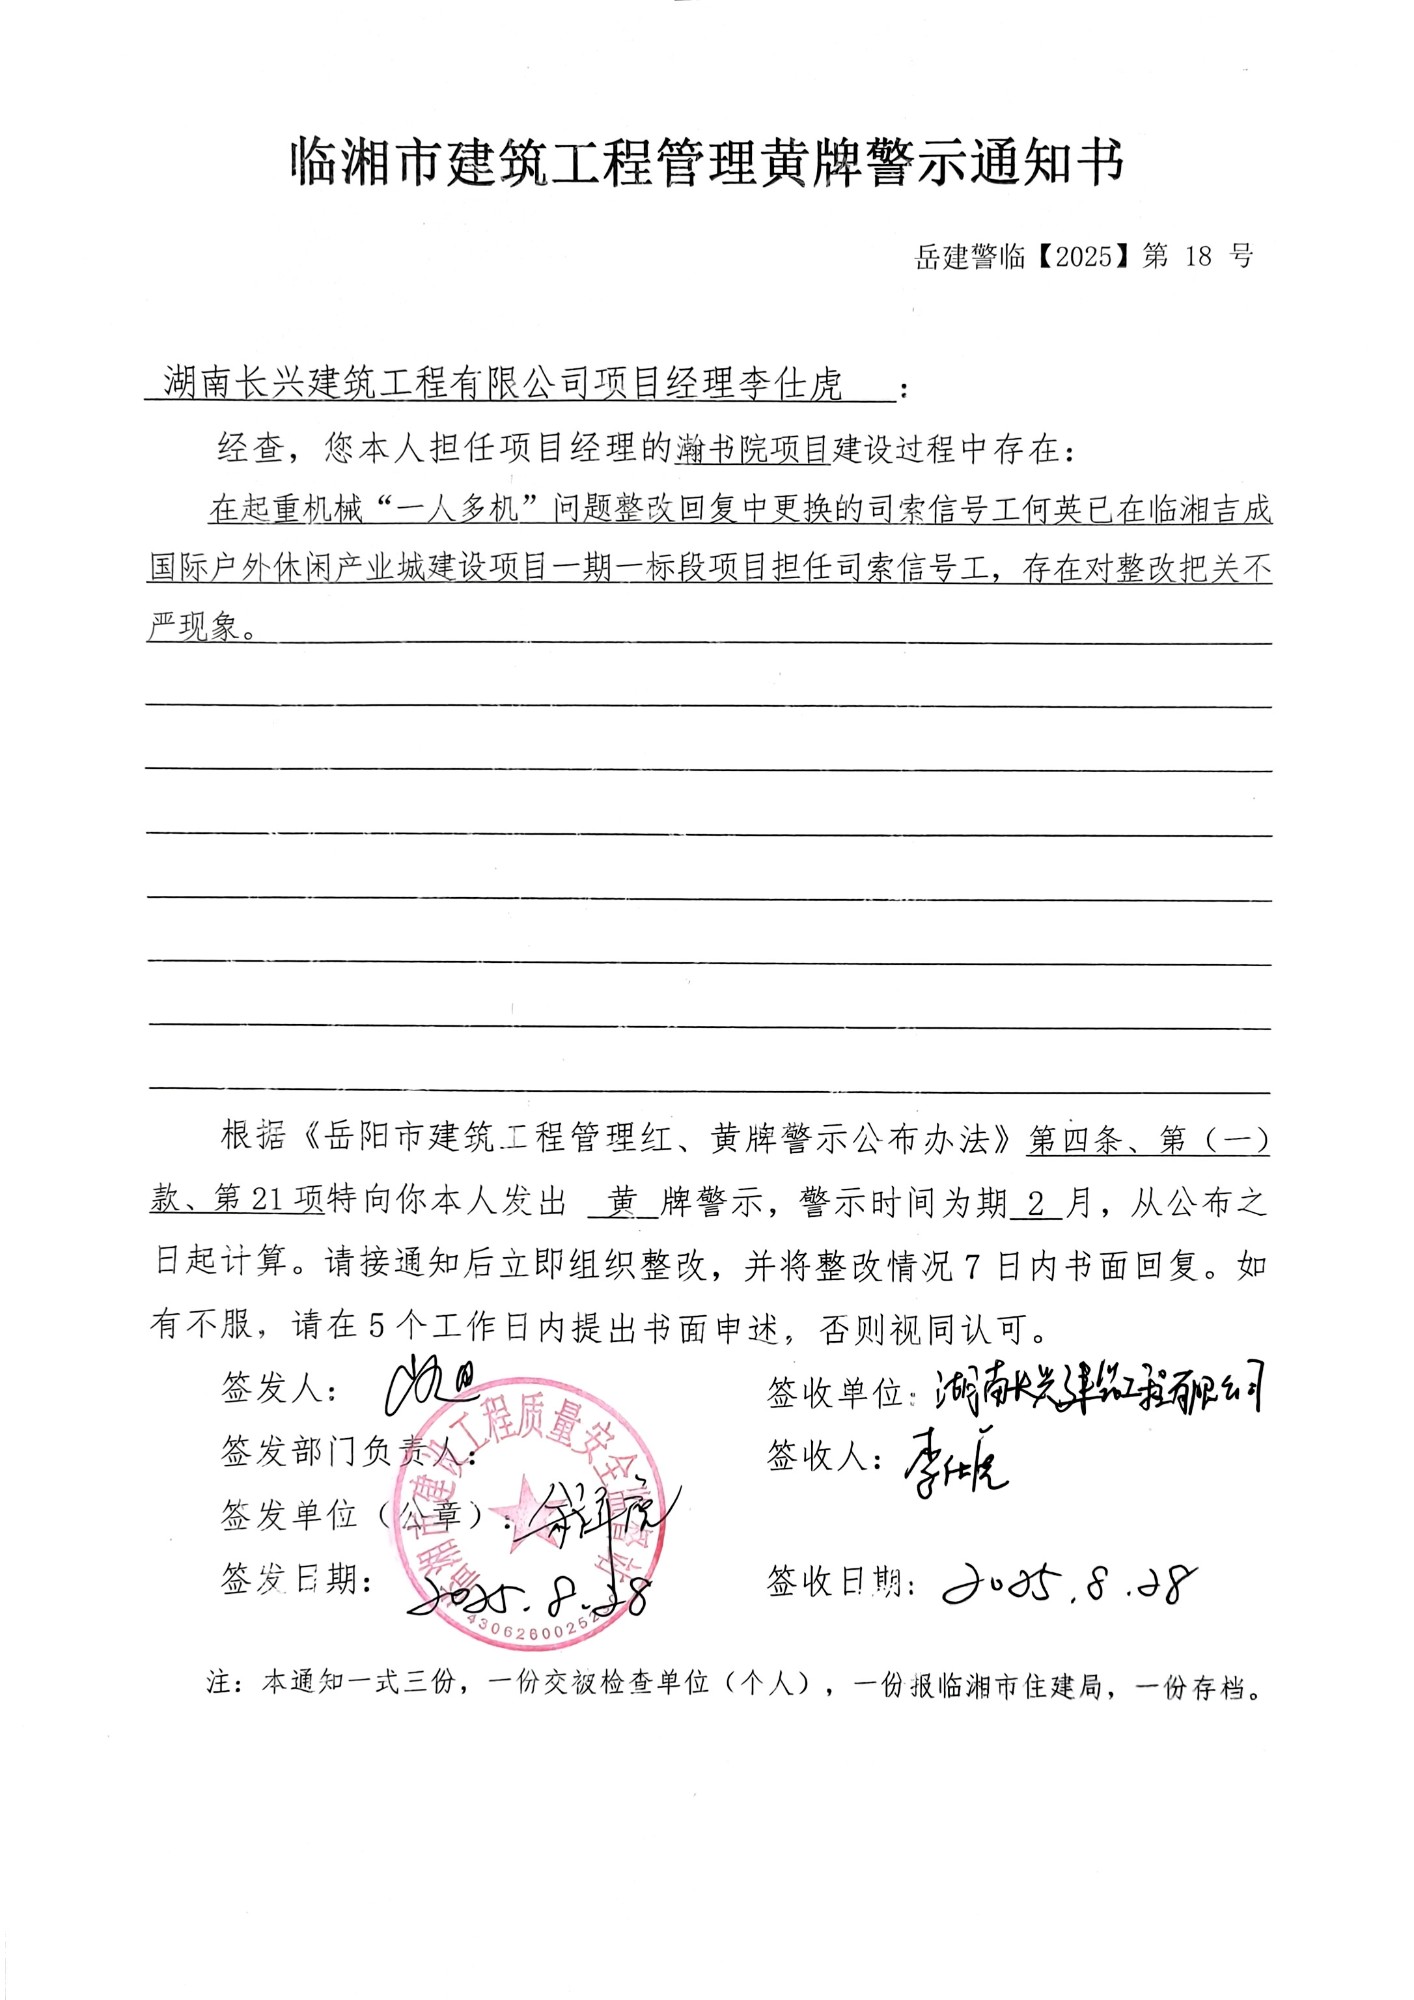 临湘市建筑工程管理黄牌警示通知书
岳建警临【2025】第 18 号
湖南长兴建筑工程有限公司项目经理李仕虎：
经查，您本人担任项目经理的瀚书院项目建设过程中存在：
在起重机械“一人多机”问题整改回复中更换的司索信号工何英已在临湘吉成
国际户外休闲产业城建设项目一期一标段项目担任司索信号工，存在对整改把关不
严现象。
根据《岳阳市建筑工程管理红、黄牌警示公布办法》第四条、第（一）
款、第21项特向你本人发出 黄 牌警示，警示时间为期 2 月，从公布之
日起计算。请接通知后立即组织整改，并将整改情况7日内书面回复。如
有不服，请在5个工作日内提出书面申述，否则视同认可。
签发人：
签收单位：湖南长兴建筑工程有限公司
签发部门负责人：
签收人：李仕虎
签发单位（公章）：
签发日期：2025.8.28
签收日期：2025.8.28
临湘市建设工程质量安全监督站
注：本通知一式三份，一份交被检查单位（个人），一份报临湘市住建局，一份存档。